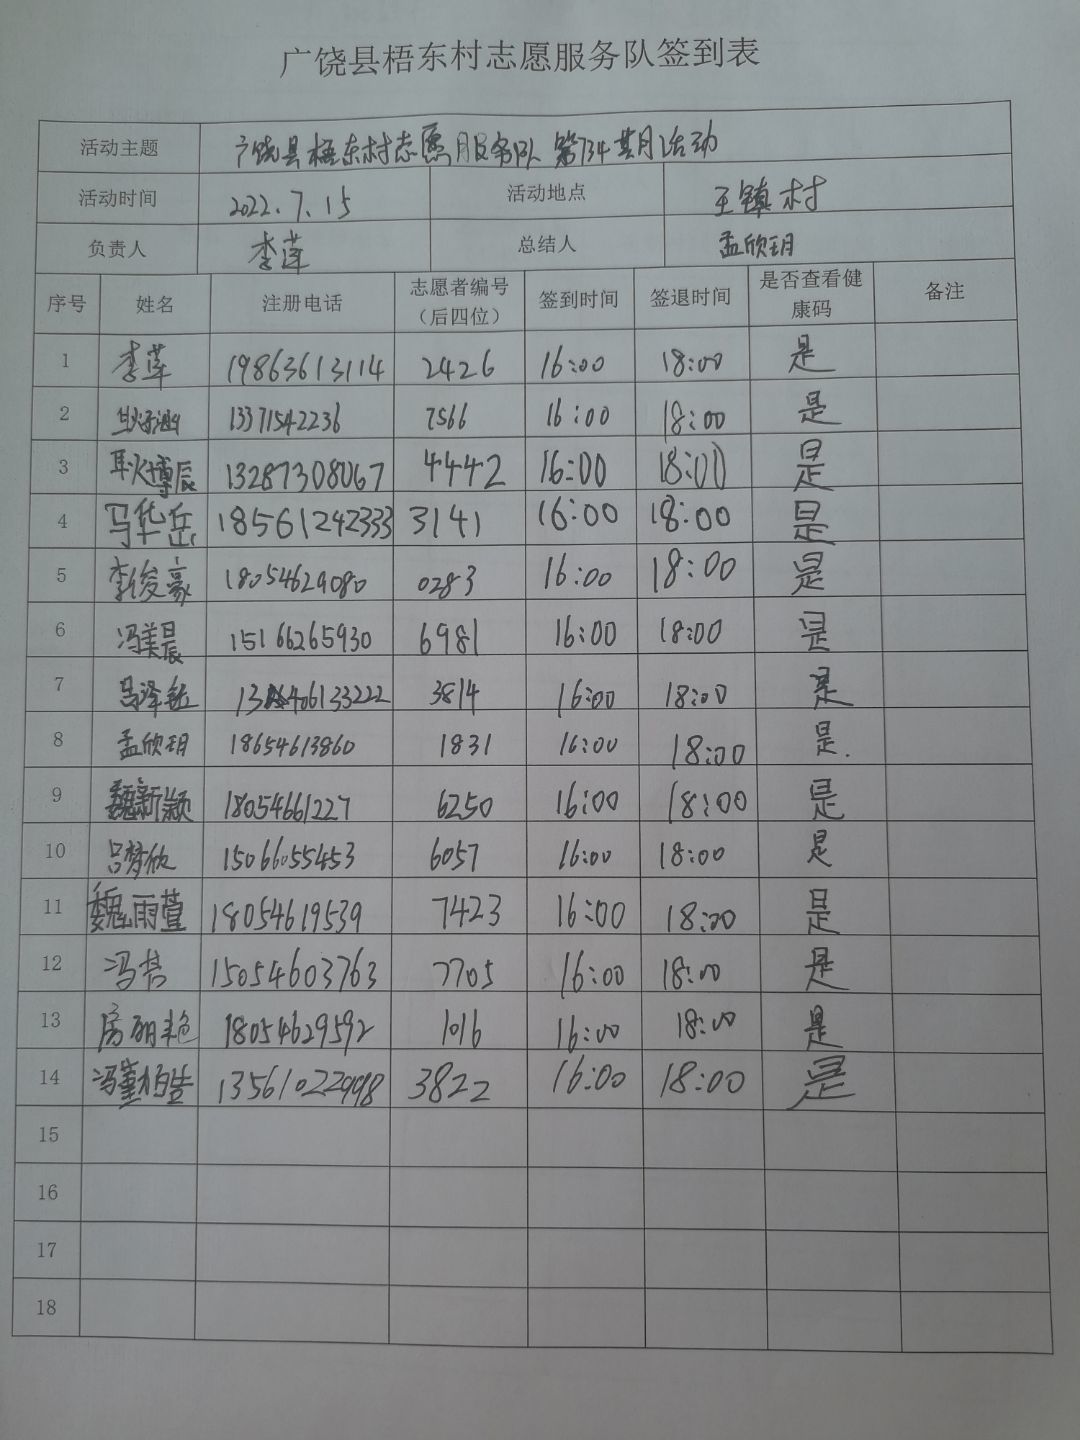 广饶县梧东村志愿服务队签到表
活动主题 广饶县梧东村志愿服务队第734期活动
活动时间 2022.7.15 活动地点 王镇村
负责人 李莲 总结人 孟欣玥
序号 姓名 注册电话 志愿者编号（后四位） 签到时间 签退时间 是否查看健康码 备注
1 李莲 19863613114 2426 16:00 18:00 是
2 13371542236 7566 16:00 18:00 是
3 耿博辰 13287308067 4442 16:00 18:00 是
4 冯华岳 18561242333 3141 16:00 18:00 是
5 李俊豪 18054629080 0283 16:00 18:00 是
6 冯美晨 15166265930 6981 16:00 18:00 是
7 3814 16:00 18:00 是
8 孟欣玥 18654613860 1831 16:00 18:00 是.
9 魏新颖 18054661227 6250 16:00 18:00 是
10 吕梦欣 15066055453 6057 16:00 18:00 是
11 魏雨萱 18054619539 7423 16:00 18:00 是
12 15054603763 7705 16:00 18:00 是
13 18054629592 1016 16:00 18:00 是
14 13561022998 3822 16:00 18:00 是
15
16
17
18